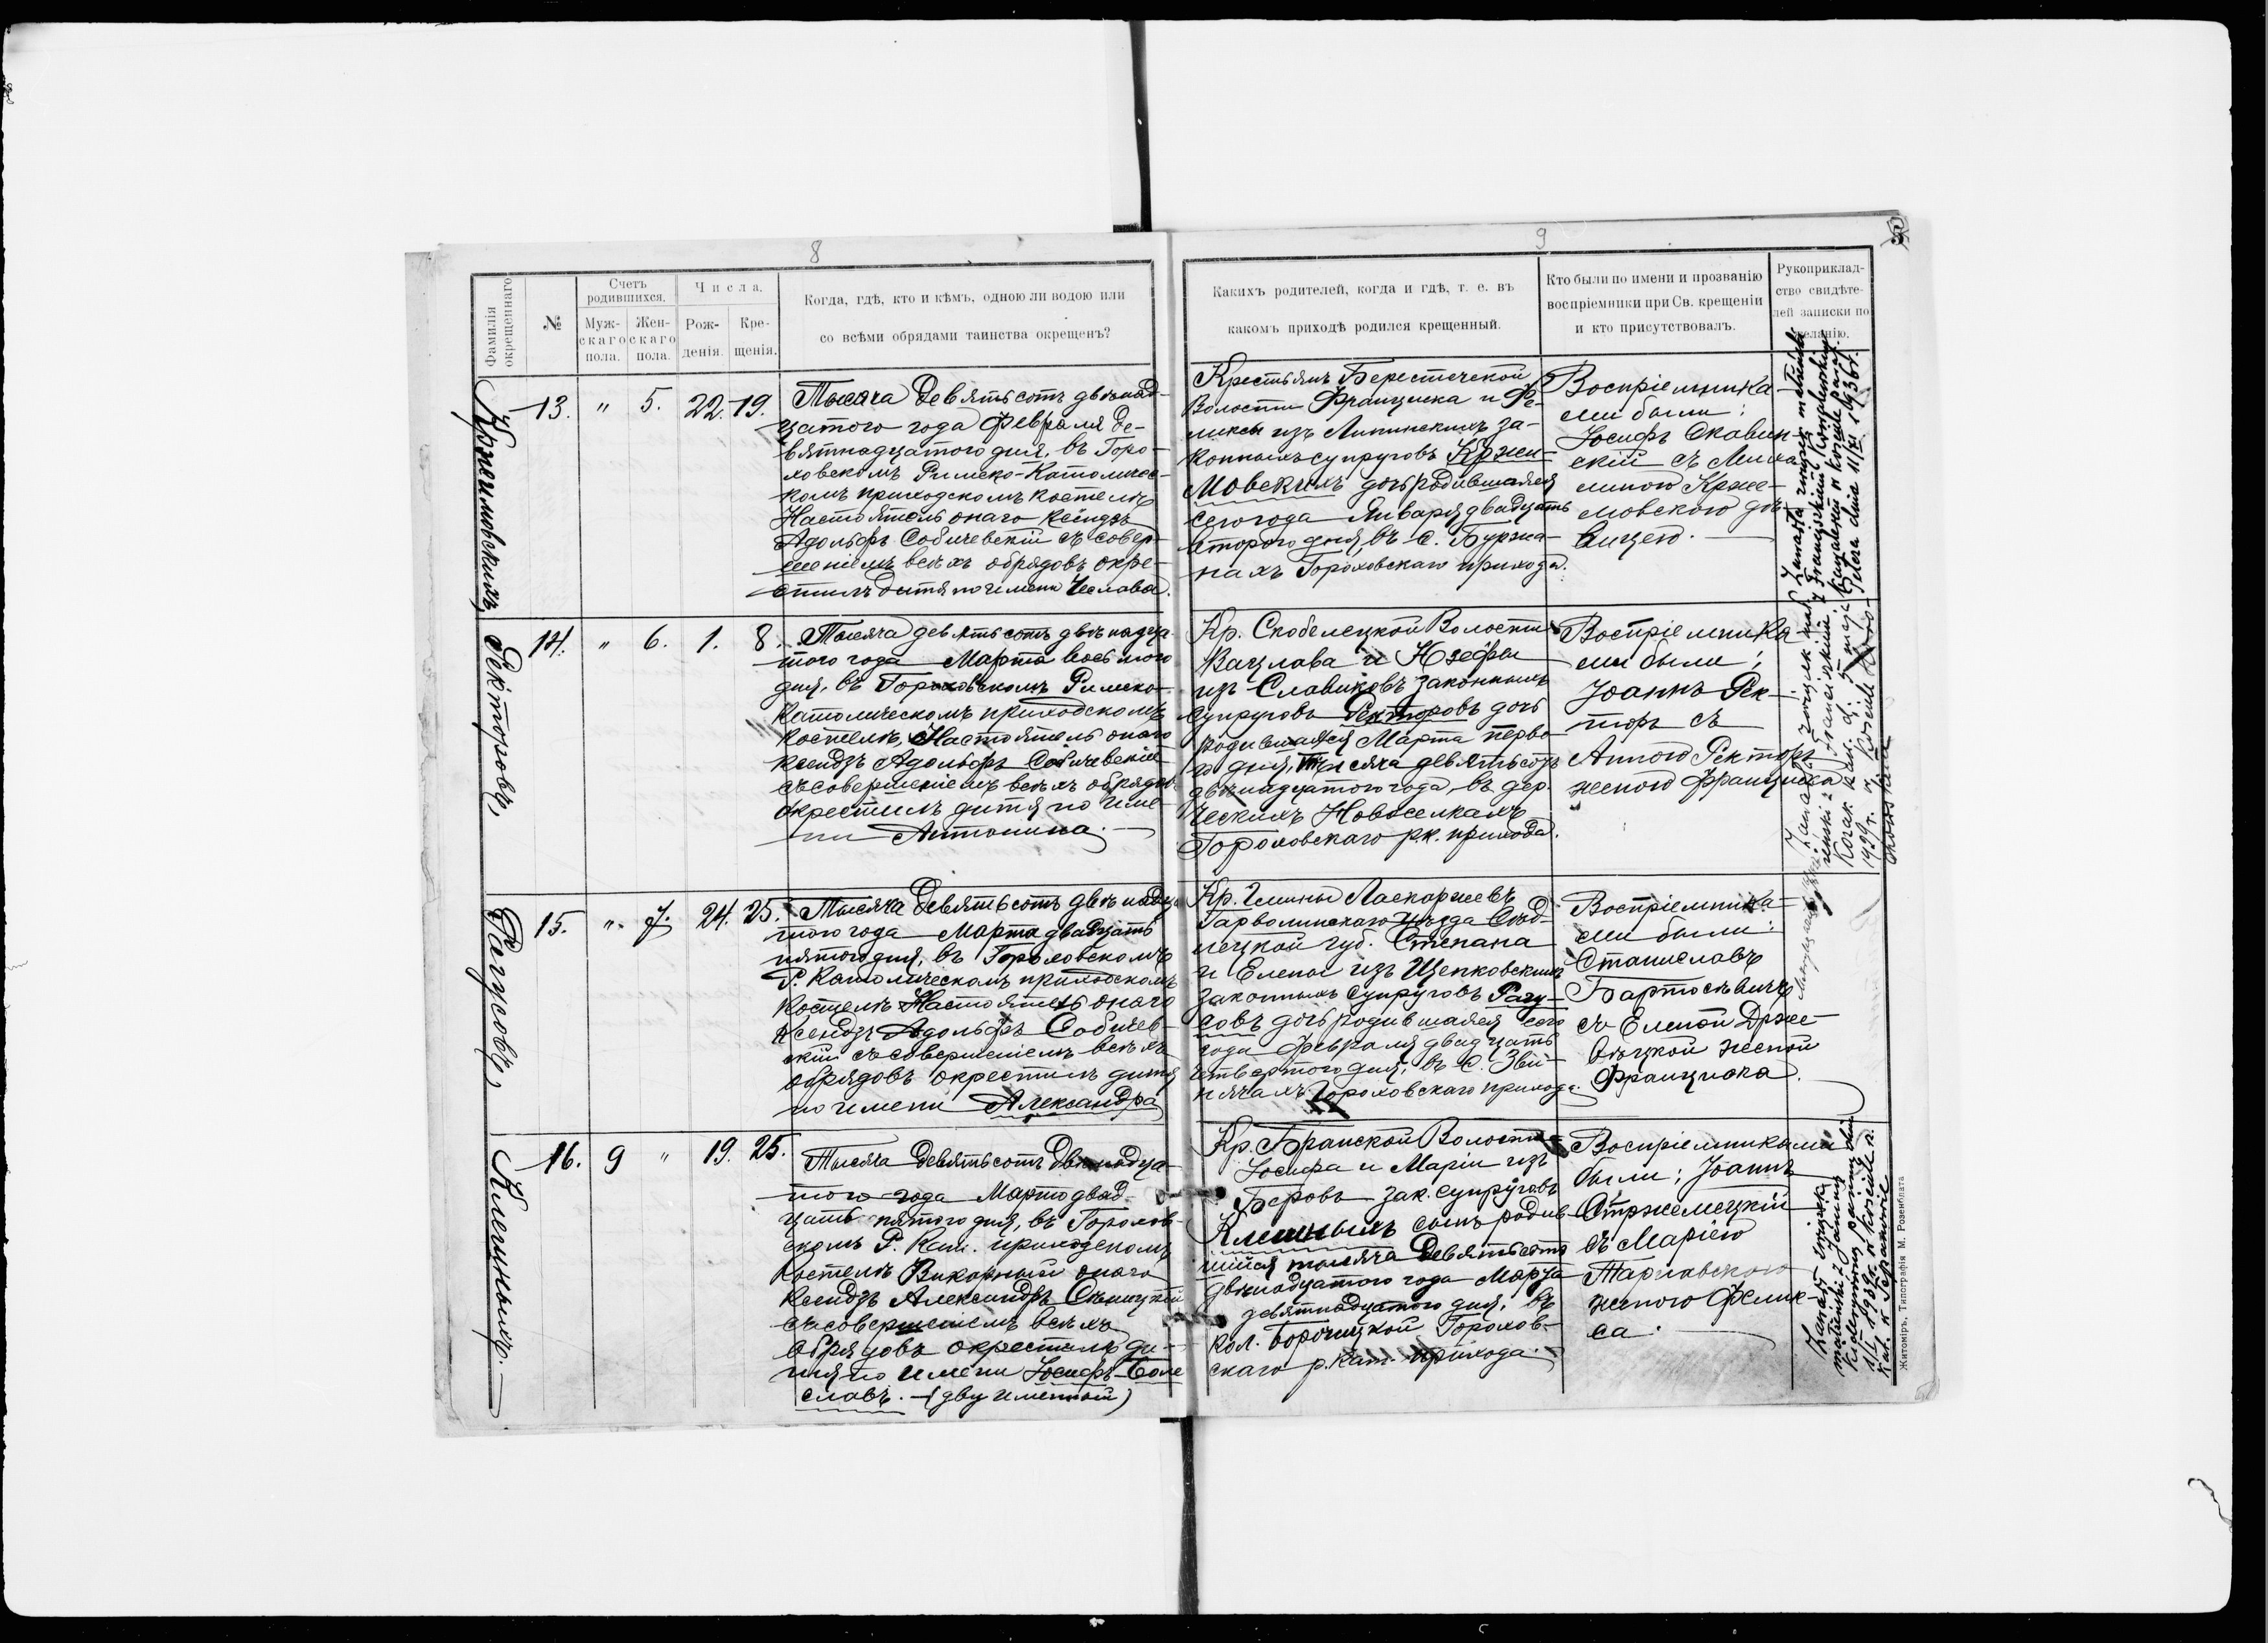 8
Фамилія окрещеннаго
№
Счетъ родившихся.
Мужскаго пола.
Женскаго пола.
Числа.
Рожденія.
Крещенія.
Когда, гдѣ, кто и кѣмъ, одною ли водою или
со всѣми обрядами таинства окрещенъ?
Кржешмовскихъ
13. " 5. 22. 19.
Тысяча девятьсотъ двѣнад-
цатого года Февраля де-
вятнадцатого дня, въ Горо-
ховскомъ Римско-Католичес-
комъ приходскомъ костелѣ
Настоятель онаго Ксендзъ
Адольфъ Собичевскій съ совер-
шеніемъ всѣхъ обрядовъ окре-
стилъ дитя по имени Чеслава.
Ректоровъ
14. " 6. 1. 8.
Тысяча девятьсотъ двѣнадца-
того года Марта восьмого
дня, въ Гороховскомъ Римско-
Католическомъ приходскомъ
костелѣ Настоятель онаго
Ксендзъ Адольфъ Собичевскій
съ совершеніемъ всѣхъ обрядов
окрестилъ дитя по име-
ни Антонина.
Рагусовъ
15. " 7. 24. 25.
Тысяча девятьсотъ двѣнадца
того года Марта двадцать
пятого дня, въ Гороховскомъ
Р. Католическомъ приходскомъ
костелѣ Настоятель онаго
Ксендзъ Адольфъ Собичев-
скій съ совершеніемъ всѣхъ
обрядовъ окрестилъ дитя
по имени Александра
Клешныхъ.
16. 9 " 19. 25.
Тысяча девятьсотъ двѣнадца-
того года Марта двад-
цать пятого дня, въ Горохов-
скомъ Р. Кат. приходскомъ
костелѣ Викарный онаго
Ксендзъ Александръ
съ совершеніемъ всѣхъ
обрядовъ окрестилъ ди-
тя по имени Іосифъ-Боле
славъ. — (двуименный)
9
5
Какихъ родителей, когда и гдѣ, т. е. въ
какомъ приходѣ родился крещенный.
Кто были по имени и прозванію
воспріемники при Св. крещеніи
и кто присутствовалъ.
Рукоприклад-
ство свидѣте-
лей записки по
желанію.
Крестьянъ Берестечской
Волости Франциска и Фе-
ликсы изъ Липинскихъ за-
конныхъ супруговъ Кржеш-
мовскихъ дочь родившаяся
сего года Января двадцать
второго дня, въ с. Буржа-
нахъ Гороховскаго прихода.
Воспріемника-
ми были:
Іосифъ Скавин-
скій съ Миха
линою Крже-
мовского дѣ-
вицею.
Кр. Скобелецкой Волости
Вацлава и Юзефы
изъ Славиковъ законныхъ
супруговъ Ректоровъ дочь
родившаяся Марта перво-
го дня, тысяча девятьсотъ
двѣнадцатого года, въ дер.
Ческихъ Новоселкахъ
Гороховскаго р.к. прихода.
Воспріемника
ми были;
Іоаннъ Рек-
торъ съ
Анною Ректоръ
женою Франциска
Кр. Гмины Ласкаржевъ
Гарволинскаго уѣзда Сѣд-
лецкой губ. Степана
и Елены изъ Щепковскихъ
законныхъ супруговъ Рагу-
совъ дочь родившаяся сего
года Февраля двадцать
четвертого дня, въ с. Звѣ-
нячахъ Гороховскаго прихода.
Воспріемника-
ми были:
Станиславъ
Бартосѣвичъ
съ Еленой Држе-
вѣцкой женой
Франциска.
Кр. Бранской Волости
Іосифа и Маріи изъ
Беровъ зак. супруговъ
Клешныхъ сынъ родив-
шійся тысяча девятьсотъ
двѣнадцатого года Марта
девятнадцатого дня, въ
кол. Борочицкой Горохов-
скаго р. Кат. прихода.
Воспріемниками
были; Іоаннъ
Стржемецкій
съ Маріею
Тарнавского
женою Фелик-
са.
Zawarła związek małżeński
z Franciszkiem
dnia 11/XI 1936 r.
Zawarł związek
małżeński z Janiną
1939 r. w kościele r.
Kat. w
Житоміръ, Типографія М. Розенблата